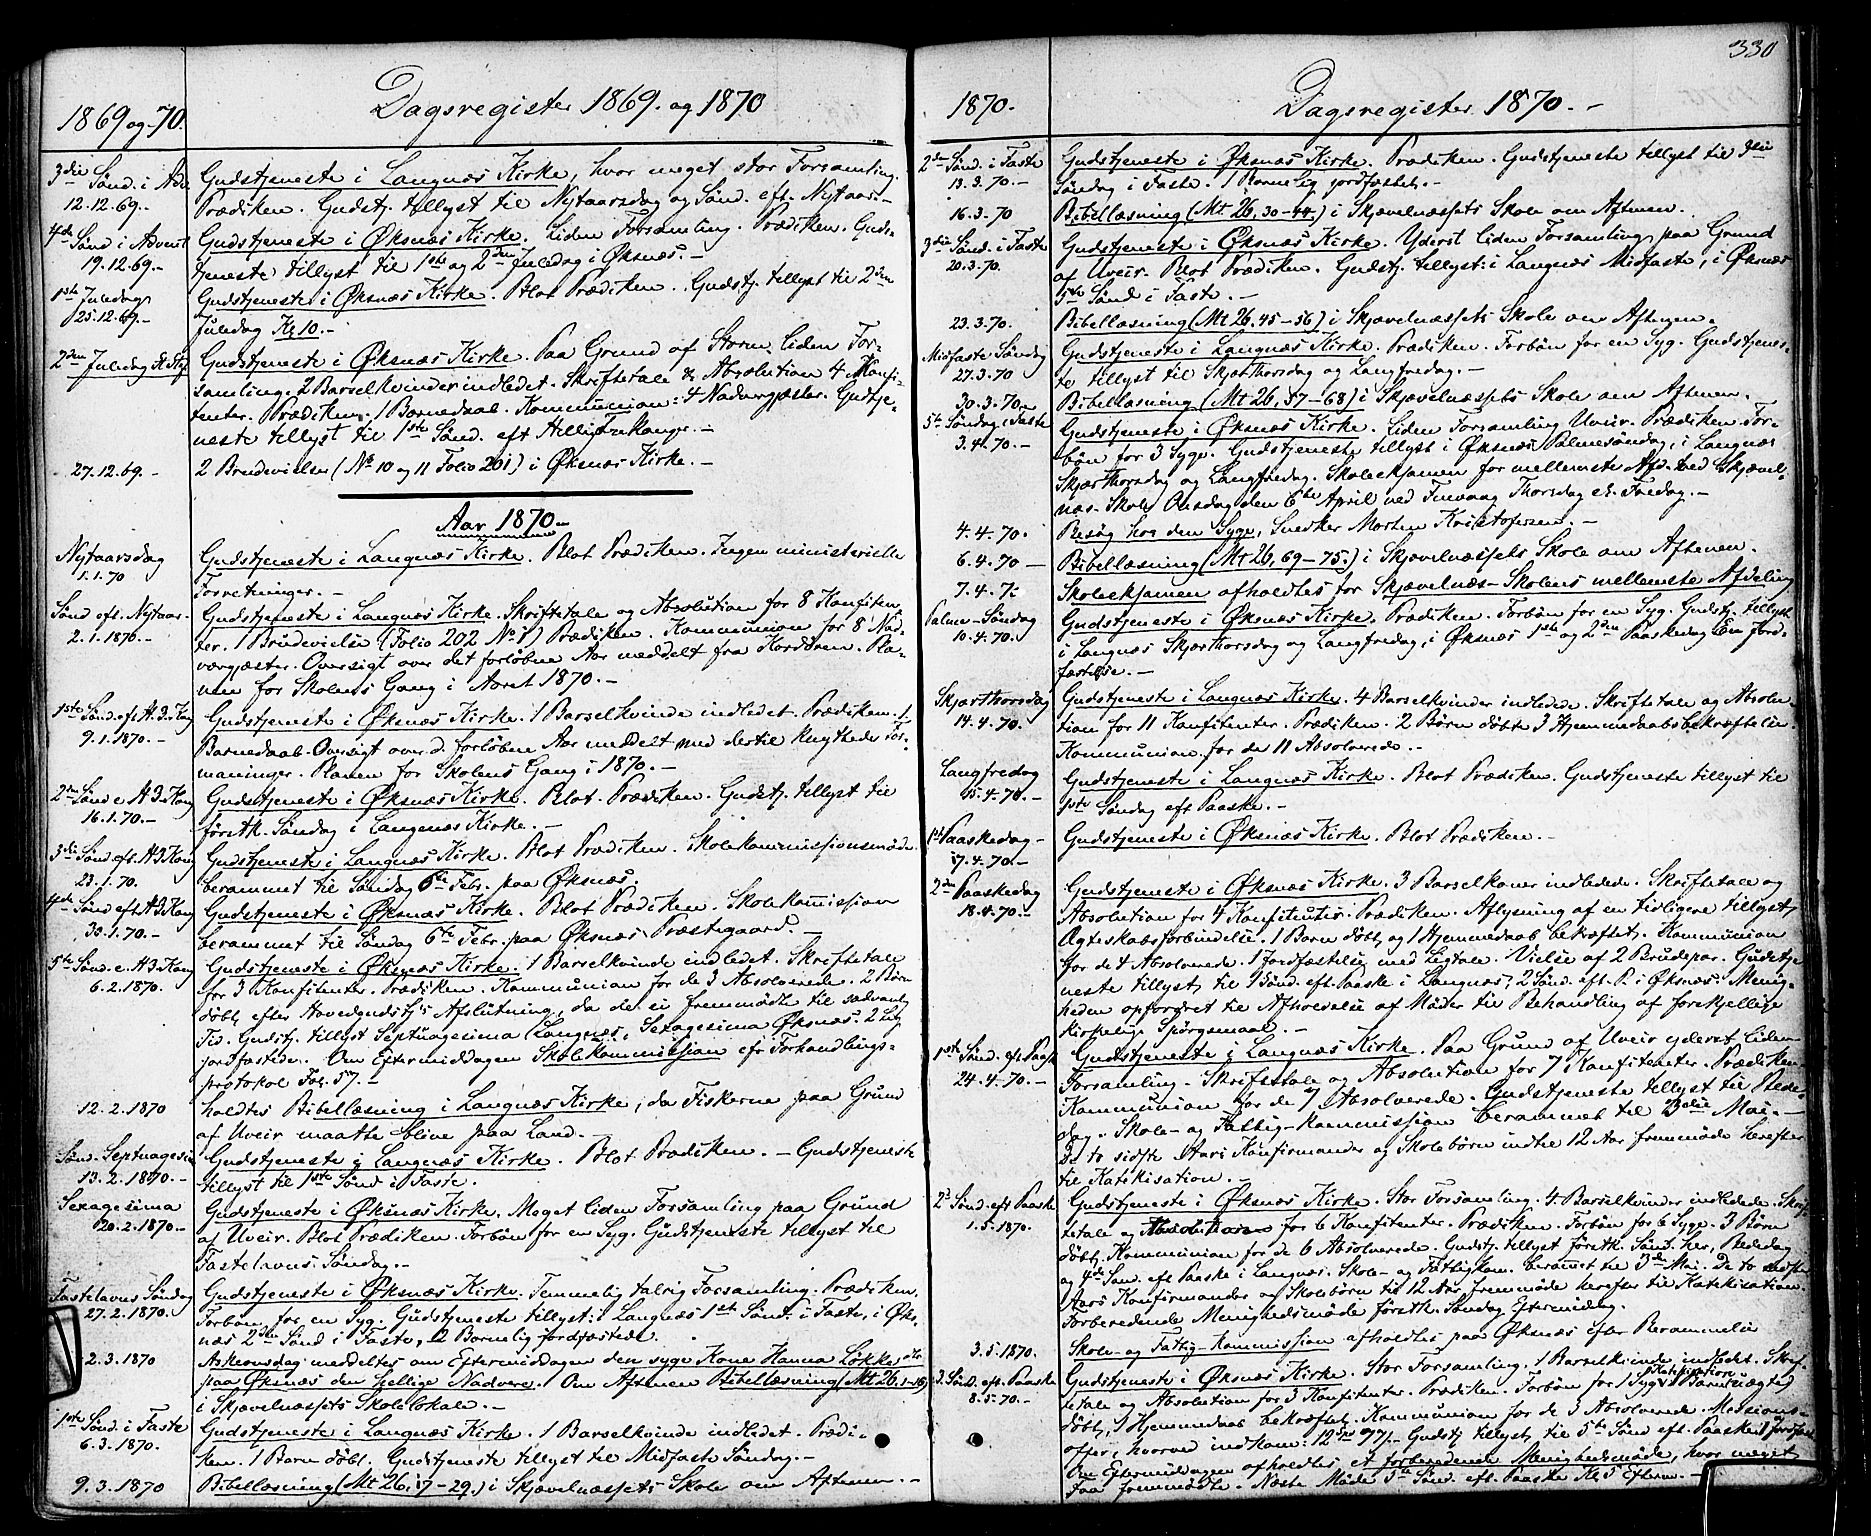 1869 og 70.
Dagsregister 1869. og 1870
3die Sønd. i Adv.
12.12.69.-
Gudstjeneste i Langnæs Kirke, hvor meget stor Forsamling.
Prædiken. Gudstj. tillyst til Nytaarsdag og Sønd. eft. Nytaar.-
4de Sønd i Advent
19.12.69.-
Gudstjeneste i Øksnæs Kirke. Liden Forsamling. Prædiken. Guds-
tjeneste tillyst til 1ste og 2den Juledag i Øksnæs.-
1ste Juledag
25.12.69.-
Gudstjeneste i Øksnæs Kirke. Blot Prædiken. Gudstj. tillyst til 2den
Juledag Kl 10.-
2den Juledag St. Stef
Gudstjeneste i Øksnæs Kirke. Paa Grund af Storm, liden For-
samling. 2 Barselkvinder indledet. Skriftetale & Absolution 4 Konfi-
tenter. Prædiken. 1 Barnedaab. Kommunion: 4 Nadvergjæster. Gudtje-
neste tillyst til 1ste Sønd. eft Helligtrekonger.-
27.12.69.-
2 Brudevielser (No 10 og 11 Folio 201) i Øksnæs Kirke.-
Aar 1870.-
Nytaarsdag
1.1.70
Gudstjeneste i Langnæs Kirke. Blot Prædiken. Ingen ministerielle
Forretninger.-
Sønd eft. Nytaar.
2.1.1870.-
Gudstjeneste i Langnæs Kirke. Skriftetale og Absolution for 8 Konfiten-
ter. 1 Brudevielse (Folio 202 No 1) Prædiken. Kommunion for 8 Nad-
vergjæster. Oversigt over det forløbne Aar meddelt fra Kordøren. Pla-
nen for Skolens Gang i Aaret 1870.-
1ste Sønd. eft H.3.Kong
9.1.1870.-
Gudstjeneste i Øksnæs Kirke. 1 Barselkvinde indledet. Prædiken. 1
Barnedaab. Oversigt over d. forløbne Aar meddelt med dertil knyttede For-
maninger. Planen for Skolens Gang i 1870.-
2den Sønd e. H.3.Kong
16.1.70.-
Gudstjeneste i Øksnæs Kirke. Blot Prædiken. Gudstj. tillyst til
førstk. Søndag i Langenæs Kirke.-
3die Sønd eft. H.3 Kong
23.1.70.
Gudstjeneste i Langnæs Kirke. Blot Prædiken. Skolekommissionsmøde
berammet til Søndag 6te Febr. paa Øksnæs.
4de Sønd eft H.3.Kong
30.1.70.-
Gudstjeneste i Øksnæs Kirke. Blot Prædiken. Skolekommission
berammet til Søndag 6te Febr. paa Øksnæs Præstegaard.-
5te Sønd. e. H.3.Kong
6.2.1870.
Gudstjeneste i Øksnæs Kirke. 1 Barselkvinde indledet. Skriftetale
for 3 Konfitenter. Prædiken. Kommunion for de 3 Absolverede. 2 Børn
døbt, efter Høvedgudstj's Afslutning, da de ei fremmødt til sædvanl.
Tid. Gudstj. tillyst Septuagesima Langnæs, Sexagesima Øksnæs. 2 Lig
jordfæstede. Om Eftermiddagen Skolekommission cfr Forhandlings-
protokol Fol. 57.-
12.2.1870
holdtes Bibellæsning i Langnæs Kirke, da Fiskerne paa Grund
af Uveir maatte blive paa Land.-
Sønd. Septuagesima
13.2.1870.-
Gudstjeneste i Langnæs Kirke. Blot Prædiken.- Gudstjeneste
tillyst til 1ste Sønd i Faste.
Sexagesima
20.2.1870.-
Gudstjeneste i Øksnæs Kirke. Meget liden Forsamling paa Grund
af Uveir. Blot Prædiken. Forbøn for en Syg. Gudstjeneste tillyst til
Fastelavns Søndag.-
Fastelavns Søndag
27.2.1870.
Gudstjeneste i Øksnæs Kirke. Temmelig talrig Forsamling. Prædiken.
Forbøn for en Syg. Gudstjeneste tillyst: i Langnæs 1ste Sønd. i Faste, i Øks-
næs 2den Sønd i Faste, 2 Barnelig jordfæstede.
2.3.1870
Askeonsdag meddeltes om Eftermiddagen den syge Kone Hanna Løkke
paa Øksnæs den hellige Nadvere. Om Aftenen Bibellæsning (Mt 26, 1-16)
i Skjævelnæssets Skolelokale.-
1ste Sønd. i Faste
6.3.1870.
Gudstjeneste i Langnæs Kirke. 1 Barselkvinde indledet. Prædi-
ken. 1 Barn døbt. Gudstjeneste tillyst til Midfaste Søndag.-
9.3.1870
Bibellæsning (Mt 26, 17-29.) i Skjævelnæssets Skole om Aftenen.-
330
1870.
Dagsregister 1870.-
2den Sønd. i Faste
13.3.70.-
Gudstjeneste i Øksnæs Kirke. Prædiken. Gudstjeneste tillyst til 3die
Søndag i Faste. 1 Barnelig jordfæstet.-
16.3.70
Bibellæsning (Mt 26, 30-44) i Skjævelnæssets Skole om Aftenen.
3die Sønd. i Faste
20.3.70.
Gudstjeneste i Øksnæs Kirke. Yderst liden Forsamling paa Grund
af Uveir. Blot Prædiken. Gudstj. tillyst: i Langnæs Midfaste, i Øksnæs
5te Sønd i Faste.-
23.3.70.
Bibellæsning (Mt 26, 45-56) i Skjævelnæssets Skole om Aftenen.-
Midfaste Søndag
27.3.70
Gudstjeneste i Langnæs Kirke. Prædiken. Forbøn for en Syg. Gudstjenes-
te tillyst til Skjærthorsdag og Langfredag.-
30.3.70.
Bibellæsning (Mt 26, 57-68) i Skjævelnæssets Skole om Aftenen.
5te Søndag i Faste
3.4.70.-
Gudstjeneste i Øksnæs Kirke. Liden Forsamling Uveir. Prædiken. For-
bøn for 3 Syge. Gudstjeneste tillyst i Øksnæs Palmesøndag, i Langnæs
Skjærthorsdag og Langfredag. Skoleeksamen for mellemste Afd. ved Skjævel-
næs-Skole Onsdag den 6te April ved Finvaag Thorsdag el. Fredag.-
4.4.70.
Besøg hos den Syge, Snedker Morten Kristofersen.-
6.4.70 -
Bibellæsning (Mt 26, 69-75.) i Skjævelnæssets Skole om Aftenen.
7.4.70
Skoleeksamen afholdtes for Skjævelnæs-Skolens mellemste Afdeling
Palme-Søndag
10.4.70.
Gudstjeneste i Øksnæs Kirke. Prædiken. Forbøn for en Syg. Gudstj. tillyst
i Langnæs Skjærthorsdag og Langfredag, i Øksnæs 1ste og 2den Paaskedag En Jord-
fæstelse.-
Skjærthorsdag
14.4.70.
Gudstjeneste i Langnæs Kirke. 4 Barselkvinder indledede. Skriftetale og Absolu-
tion for 11 Konfitenter. Prædiken. 2 Børn døbte 3 Hjemmedaabsbekræftelser.
Kommunion for de 11 Absolverede.-
Langfredag
15.4.70.-
Gudstjeneste i Langnæs Kirke. Blot Prædiken. Gudstjeneste tillyst til
1ste Søndag eft Paaske.-
1ste Paaskedag-
17.4.70.-
Gudstjeneste i Øksnæs Kirke. Blot Prædiken.-
2den Paaskedag
18.4.70.-
Gudstjeneste i Øksnæs Kirke. 3 Barselkoner indledede. Skriftetale og
Absolution for 4 Konfitenter. Prædiken. Aflysning af en tidligere tillyst
Ægteskabsforbindelse. 1 Barn døbt og 1 Hjemmedaab bekræftet. Kommunion
for de 4 Absolverede. 1 Jordfæstelse med Ligtale. Vielse af 2 Brudepar. Gudstje-
neste tillyst, til 1 Sønd. eft. Paaske i Langnæs, 2 Sønd. eft. P. i Øksnæs. Menig-
heden opfordret til Afholdelse af Møder til Behandling af forskjellige
kirkelige Spørgsmaal.-
1ste Sønd. eft Paaske
24.4.70.-
Gudstjeneste i Langnæs Kirke. Paa Grund af Uveir yderst liden
Forsamling. Skriftetale og Absolution for 7 Konfitenter. Prædiken.
Kommunion for de 7 Absolverede. Gudstjeneste tillyst til Bede-
dag.- Skole- og Fattig-Kommission berammes til 3die Mai.-
De to sidste Aars Konfirmander og Skolebørn indtil 12 Aar fremmøde herefter
til Katekisation.
2d Sønd. eft Paaske
1.5.1870.
Gudstjeneste i Øksnæs Kirke. Stor Forsamling. 4 Barselkvinder indledede. Skrif-
tetale og Absolution for 6 Konfitenter. Prædiken. Forbøn for 6 Syge. 3 Børn
døbt. Kommunion for de 6 Absolverede. Gudstj. tillyst førstk. Sønd. her, Bededag
og 4de Sønd. eft Paaske i Langnæs. Skole- og Fattigkom. berammet til 3die Mai. De to sidste
Aars Konfirmander og Skolebørn til 12 Aar fremmøde herefter til Katekisation.
Forberedende Menighedsmøde førstk. Søndag Eftermiddag.
3.5.1870.
Skole- og Fattig-Kommission afholdtes paa Øksnæs efter Berammelse
3. Sønd. eft. Paaske
8.5.70.-
Gudstjeneste i Øksnæs Kirke. Stor Forsamling. 1 Barselkvinde indledet. Skrif-
tetale og Absolution for 3 Konfitenter. Prædiken. Forbøn for 1 Syg. Katekisation 1 Barn
døbt, 1 Hjemmedaab bekræftet. Kommunion for de 3 Absolverede. Missions-
offer, hvorved indkom: 12 Gudstj tillyst til 5te Sønd eft. Paaske
Om Eftermiddagen afholdtes et forberedende Menighedsmøde, hvor meget
faa fremmødte. Næste Møde 5te Sønd. eft. Paaske Kl 5 Efterm.-